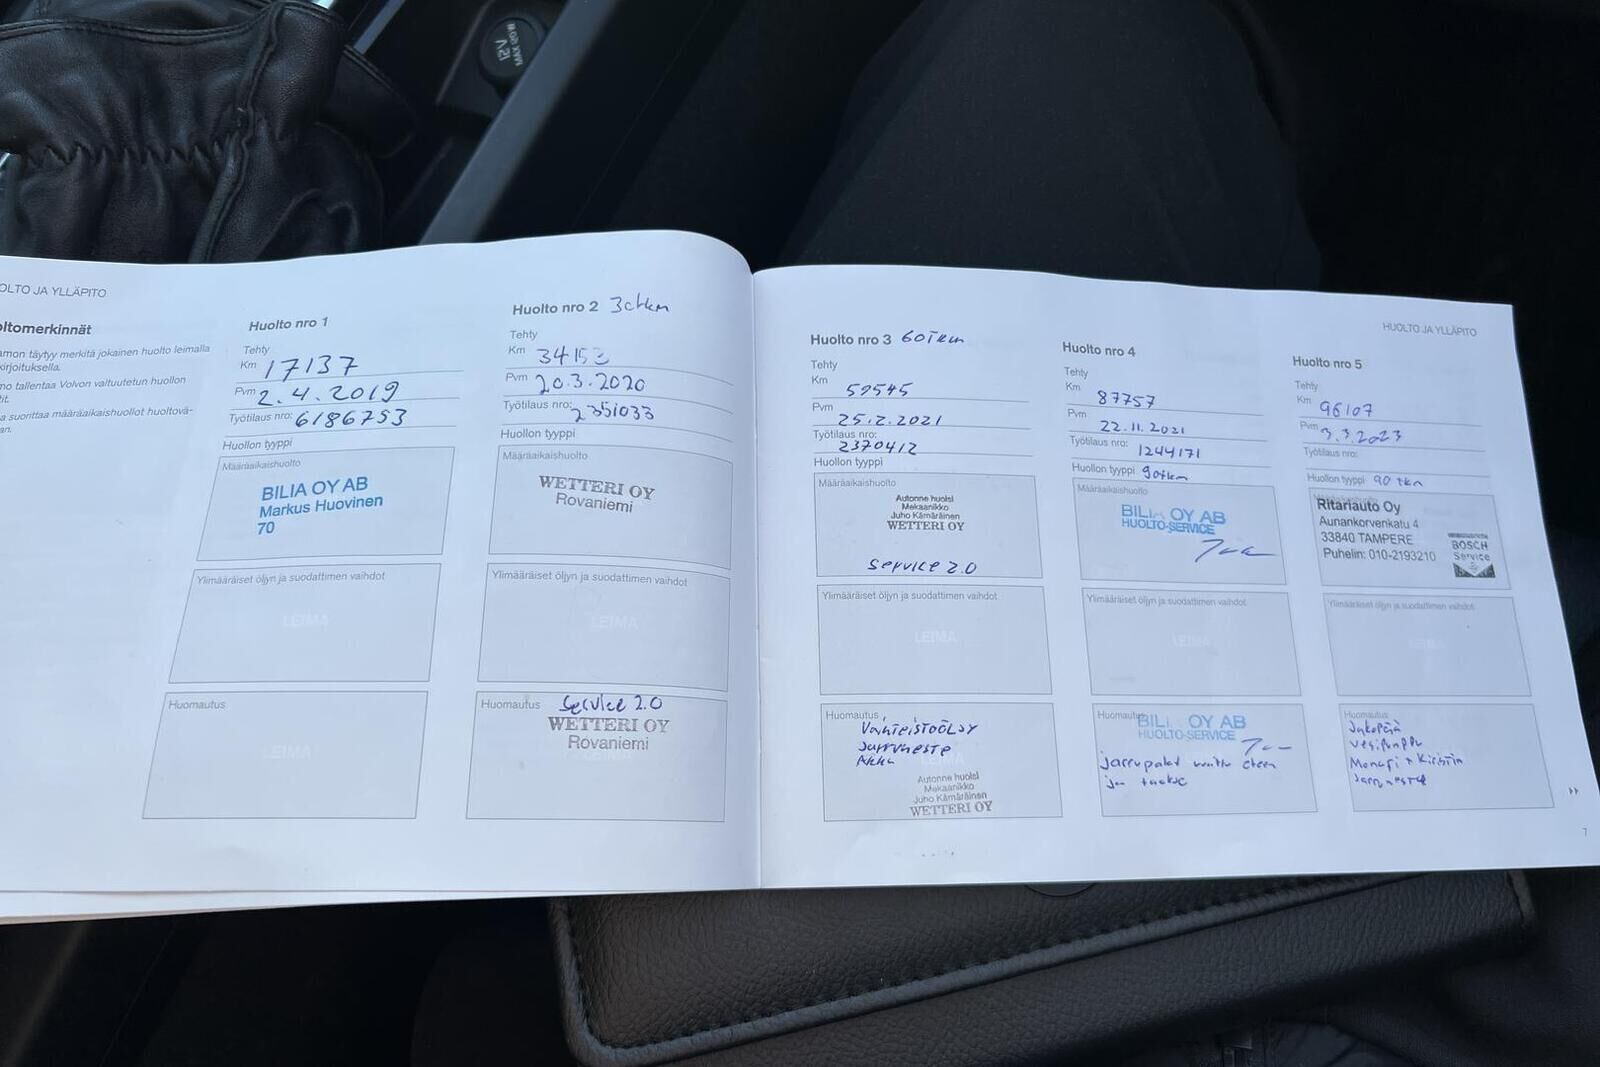 12V
MAX 120W
HUOLTO JA YLLÄPITO
oltomerkinnät
amon täytyy merkitä jokainen huolto leimalla
kirjoituksella.
mo tallentaa Volvon valtuutetun huollon
tit.
a suorittaa määräaikaishuollot huoltovä-
an.
Huolto nro 1
Tehty
Km 17137
Pvm 2.4.2019
Työtilaus nro: 6186753
Huollon tyyppi
Määräaikaishuolto
BILIA OY AB
Markus Huovinen
70
Ylimääräiset öljyn ja suodattimen vaihdot
LEIMA
Huomautus
LEIMA
Huolto nro 2
Tehty
Km 34153
Pvm 20.3.2020
Työtilaus nro: 2351033
Huollon tyyppi
Määräaikaishuolto
WETTERI OY
Rovaniemi
Ylimääräiset öljyn ja suodattimen vaihdot
LEIMA
Huomautus Service 2.0
WETTERI OY
Rovaniemi
HUOLTO JA YLLÄPITO
Huolto nro 3 60Tkm
Tehty
Km 59545
Pvm 25.2.2021
Työtilaus nro:
2370412
Huollon tyyppi
Määräaikaishuolto
Autonne huolsi
Mekaanikko
Juho Kämäräinen
WETTERI OY
Service 2.0
Ylimääräiset öljyn ja suodattimen vaihdot
LEIMA
Huomautus
Vaihteistoöljy
Jarruneste
Akku
Autonne huolsi
Mekaanikko
Juho Kämäräinen
WETTERI OY
Huolto nro 4
Tehty
Km 87757
Pvm 22.11.2021
Työtilaus nro: 1244171
Huollon tyyppi 90tkm
Määräaikaishuolto
BILIA OY AB
HUOLTO-SERVICE
Ylimääräiset öljyn ja suodattimen vaihdot
LEIMA
Huomautus
BILIA OY AB
HUOLTO-SERVICE
jarrupalat eteen
ja taakse
Huolto nro 5
Tehty
Km 96107
Pvm 3.3.2023
Työtilaus nro:
Huollon tyyppi 90 tkm
Määräaikaishuolto
Ritariauto Oy
Aunankorvenkatu 4
33840 TAMPERE
Puhelin: 010-2193210
BOSCH
Service
Ylimääräiset öljyn ja suodattimen vaihdot
LEIMA
Huomautus
Jakopää
vesipumppu
Monari + Kiristin
Jarruneste
7